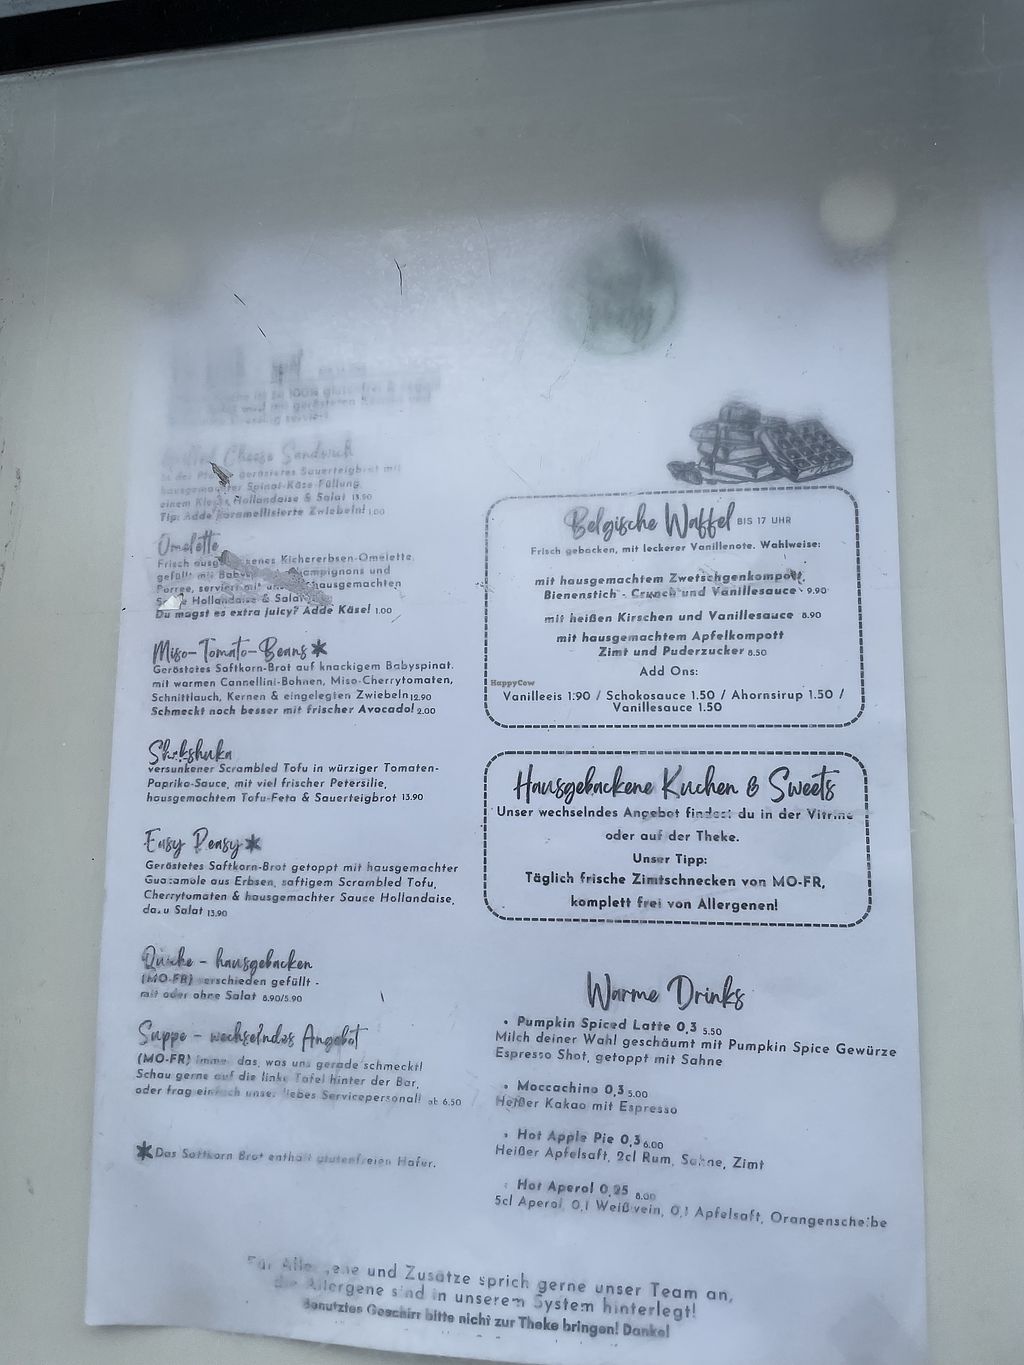 100% glutenfrei &
gerösteten
Grilled Cheese Sandwich
gerösteten Sauerteigbrot mit
hausgemachter Spinat-Käse-Füllung
einem Klecks Hollandaise & Salat 13.90
Tip: Adde karamellisierte Zwiebeln! 1.00
Omelette
Frisch Kichererbsen-Omelette,
gefüllt mit Champignons und
Porree, serviert mit hausgemachten
Hollandaise & Salat
Du magst es extra juicy? Adde Käse! 1.00
Miso-Tomato-Beans*
Geröstetes Saftkorn-Brot auf knackigem Babyspinat.
mit warmen Cannellini-Bohnen, Miso-Cherrytomaten,
Schnittlauch, Kernen & eingelegten Zwiebeln 12.90
Schmeckt noch besser mit frischer Avocado! 2.00
Shakshuka
versunkener Scrambled Tofu in würziger Tomaten-
Paprika-Sauce, mit viel frischer Petersilie,
hausgemachtem Tofu-Feta & Sauerteigbrot 13.90
Easy Peasy*
Geröstetes Saftkorn-Brot getoppt mit hausgemachter
Guacamole aus Erbsen, saftigem Scrambled Tofu,
Cherrytomaten & hausgemachter Sauce Hollandaise,
dazu Salat 13.90
Quiche - hausgebacken
(MO-FR) verschieden gefüllt -
mit oder ohne Salat 8.90/5.90
Suppe - wechselndes Angebot
(MO-FR) immer das, was uns gerade schmeckt!
Schau gerne auf die linke Tafel hinter der Bar,
oder frag einfach unser liebes Servicepersonal! ab 6.50
*Das Saftkorn Brot enthält glutenfreien Hafer.
Belgische Waffel BIS 17 UHR
Frisch gebacken, mit leckerer Vanillenote. Wahlweise:
mit hausgemachtem Zwetschgenkompott,
Bienenstich - Crunch und Vanillesauce 9.90
mit heißen Kirschen und Vanillesauce 8.90
mit hausgemachtem Apfelkompott
Zimt und Puderzucker 8.50
Add Ons:
HappyCow
Vanilleeis 1.90 / Schokosauce 1.50 / Ahornsirup 1.50 /
Vanillesauce 1.50
Hausgebackene Kuchen & Sweets
Unser wechselndes Angebot findest du in der Vitrine
oder auf der Theke.
Unser Tipp:
Täglich frische Zimtschnecken von MO-FR,
komplett frei von Allergenen!
Warme Drinks
• Pumpkin Spiced Latte 0,3 5.50
Milch deiner Wahl geschäumt mit Pumpkin Spice Gewürze
Espresso Shot, getoppt mit Sahne
• Moccachino 0,3 5.00
Heißer Kakao mit Espresso
• Hot Apple Pie 0,3 6.00
Heißer Apfelsaft, 2cl Rum, Sahne, Zimt
• Hot Aperol 0,25 8.00
5cl Aperol, 0,1 Weißwein, 0,1 Apfelsaft, Orangenscheibe
Für Allergene und Zusätze sprich gerne unser Team an,
die Allergene sind in unserem System hinterlegt!
Benutztes Geschirr bitte nicht zur Theke bringen! Danke!